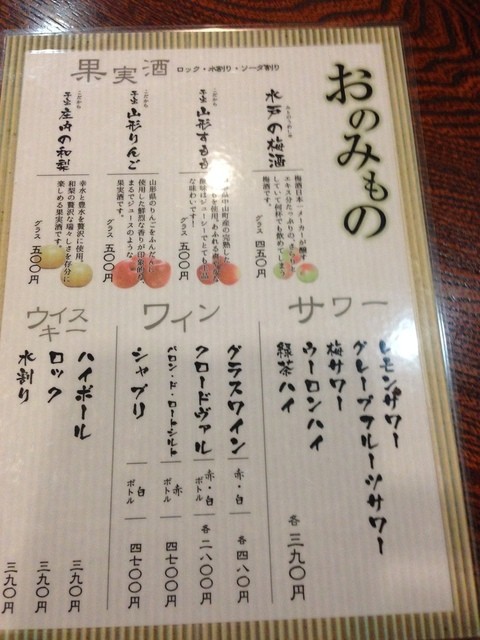 おのみもの
果実酒
ロック・水割り・ソーダ割り
水戸の梅酒
梅酒日本一メーカーが醸す
エキス分たっぷりの、
していて何杯でも飲めてしまう
梅酒です。
グラス 四五〇円
山形すもも
中山町産の完熟した
を使用。あふれる
ジューシーでとても
な味わいです!
グラス 五〇〇円
山形りんご
山形県のりんごをふんだんに
使用した鮮烈な香りが印象的。
まるでジュースのような
果実酒です。
グラス 五〇〇円
庄内の和梨
幸水と豊水を贅沢に使用。
和梨の贅沢な瑞々しさを存分に
楽しめる果実酒です。
グラス 五〇〇円
サワー
レモンサワー
グレープフルーツサワー
梅サワー
ウーロンハイ
緑茶ハイ
各 三九〇円
ワイン
グラスワイン 赤・白 各 四八〇円
クロードヴァル 赤・白 ボトル 各 二八〇〇円
バロン・ド・ロートシルト 赤 ボトル 四七〇〇円
シャブリ 白 ボトル 四七〇〇円
ウイスキー
ハイボール 三九〇円
ロック 三九〇円
水割り 三九〇円